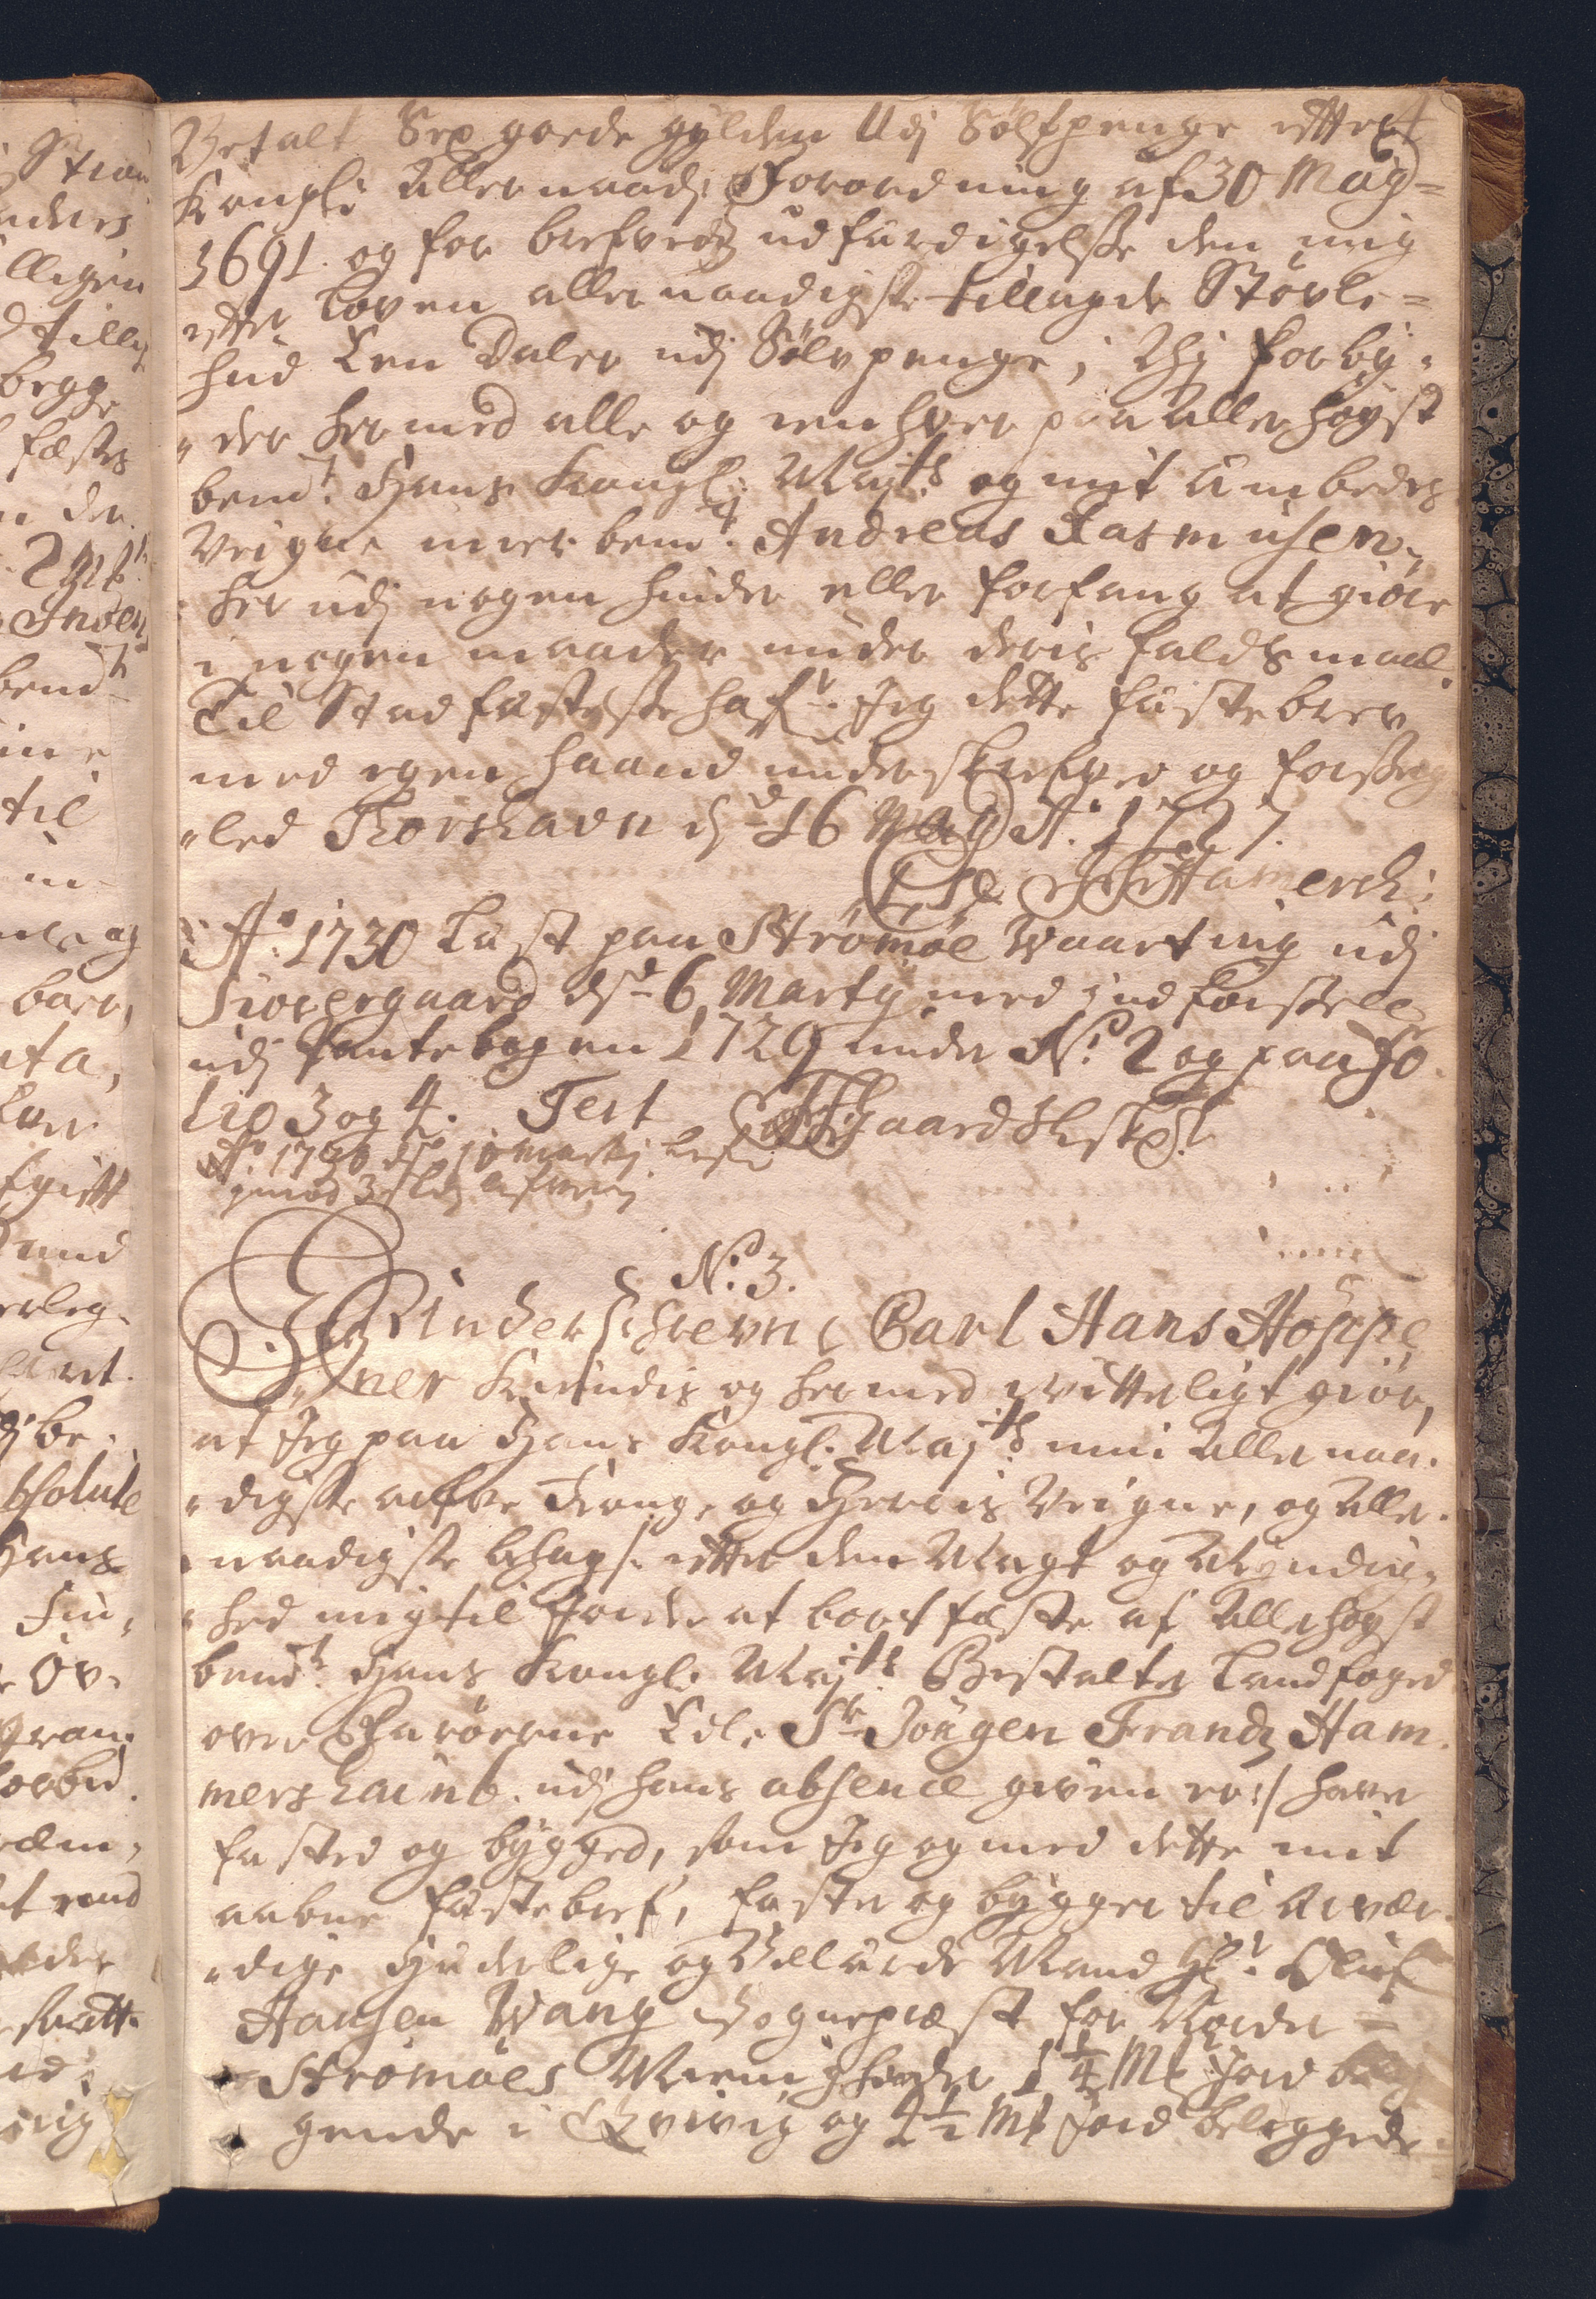 Betalt Sex goede gylden Udj Sölfpenge effter
4
Kongl: Allernaad: Forordning af 30 May=
1691. og for brefvedz udfærdigelsse den mig
effter Loven allernaadigste tillagde Stövle=
hud Een Daler udj Sölvpenge; Thj forby-
der hermed alle og enhver paa Allerhöyst
bemt. Hans Kongl: Mayts og mit Embedes
Veigne meerbemt. Andreas Rasmusen,
her udj nogen hinder eller forfang at giöre
i nogen maader under deris faldsmaal.
Til Stadfæstelsse hafr. Jeg dette fæstebrev
med egen haand underskrefved og forseg
led Thorshavn d: 16 May Ao. 1727.
J F Hamersh:
Ao. 1730 Læst paa Strömöe Vaarting udj
Siovergaard dend 6 Marty med indförsel
udj Pantebogen 1729 under No. 2 og paa Fo
lio 3 og 4. Test
Ao 1730 d 10 Martij læst
No. 3.
Underschrevne Carl Hans Höppe
ner Kiendis og hermed vitterligt giör,
at Jeg paa Hans Kongl. Mayts min Allernaa-
digste arfve Konge og Herris Veigne, og Aller-
naadigste behag /: effter den Magt og Myndig-
hed mig til Jorder at bortfæste af Allerhöyst
bemt. Hans Kongl. Mayts Bestalter Landfoged
over Færöerne Edl. Sr. Jörgen Frandz Ham-
mershaimb. udj hans absence given er :/ haver
fæsted og bygged, som Jeg og med dette mit
aabne fæstebref, fæster og bygger til Ærvær-
dige Hæderlige og Vellærde Mand Hr. Oluf
Hansen Wang Sognepræst for Norder=
Strömöes Menigheder 1 1/4 Mk Jord belig
gende i Qvivig og 2 1/2 Mk Jord beliggende